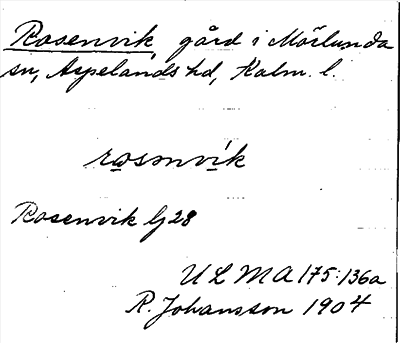 Rosenvik, gård i Mörlunda
sn, Aspelands hd, Kalm. l.
rosənvík
Rosenvik Lj 28
ULMA 175:136a
R. Johansson 1904